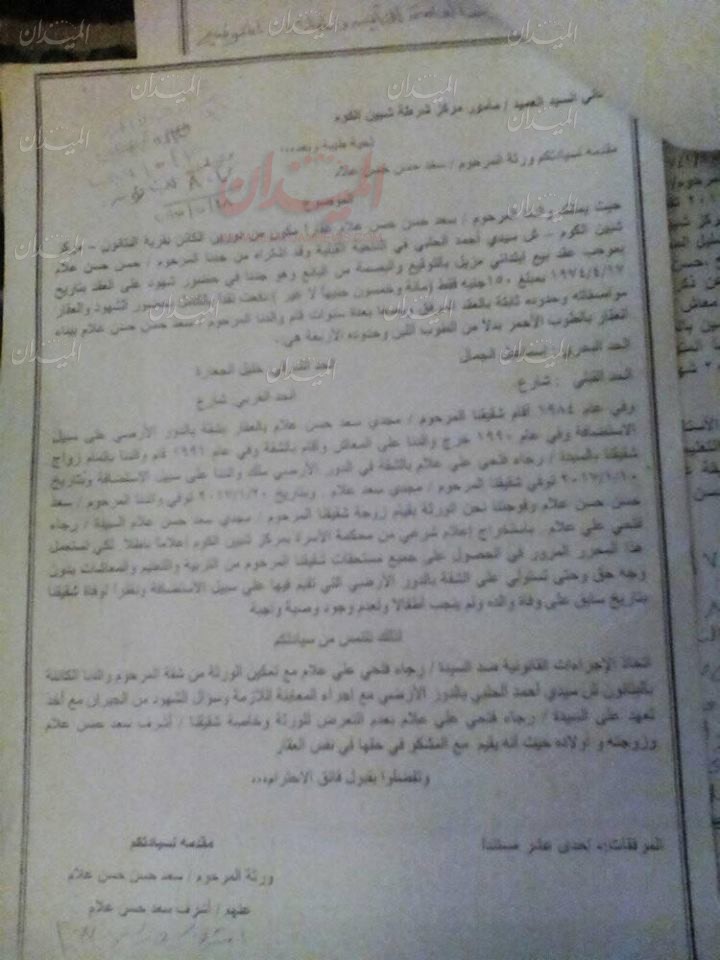 السيد العميد / مأمور مركز شرطة شبين الكوم
تحية طيبة وبعد،،،
مقدمه لسيادتكم ورثة المرحوم / سعد حسن حسن علام
الموضوع
حيث يمتلك والدنا المرحوم / سعد حسن حسن علام عقارا مكون من دورين الكائن بقرية البتانون – مركز
شبين الكوم – ش سيدي أحمد الحلبي في الناحية القبلية وقد اشتراه من جدنا المرحوم / حسن حسن علام
بموجب عقد بيع ابتدائي مزيل بالتوقيع والبصمة من البائع وهو جدنا في حضور شهود على العقد بتاريخ
١٩٧٤/٤/١٧ بمبلغ ١٥٠ جنيه فقط (مائة وخمسون جنيها لا غير) دفعت نقدا بالكامل بحضور الشهود والعقار
مواصفاته وحدوده ثابتة بالعقد المرفق بعدة سنوات قام والدنا المرحوم / سعد حسن حسن علام ببناء
العقار بالطوب الأحمر بدلا من الطوب اللبن وحدوده الأربعة هي:
الحد البحري: الجمال
الحد الشرقي خليل الجعدرة
الحد القبلي : شارع
الحد الغربي شارع
وفي عام ١٩٨٤ أقام شقيقنا المرحوم / مجدي سعد حسن علام بالعقار بشقة بالدور الأرضي على سبيل
الاستضافة وفي عام ١٩٩٠ خرج والدنا على المعاش وأقام بالشقة وفي عام ١٩٩١ قام والدنا بإتمام زواج
شقيقنا بالسيدة / رجاء فتحي علي علام بالشقة في الدور الأرضي ملك والدنا على سبيل الاستضافة وبتاريخ
٢٠١٧/١/١٠ توفي شقيقنا المرحوم / مجدي سعد علام . وبتاريخ ٢٠١٧/١/٢٠ توفي والدنا المرحوم / سعد
حسن حسن علام وفوجئنا نحن الورثة بقيام زوجة شقيقنا المرحوم / مجدي سعد حسن علام السيدة / رجاء
فتحي علي علام . باستخراج إعلام شرعي من محكمة الأسرة بمركز شبين الكوم إعلاما باطلا لكي تستعمل
هذا المحرر المزور في الحصول على جميع مستحقات شقيقنا المرحوم من التربية والتعليم والمعاشات بدون
وجه حق وحتى تستولي على الشقة بالدور الأرضي التي تقيم فيها على سبيل الاستضافة ونظرا لوفاة شقيقنا
بتاريخ سابق على وفاة والده ولم ينجب أطفالا ولعدم وجود وصية واجبة
لذلك نلتمس من سيادتكم
اتخاذ الإجراءات القانونية ضد السيدة / رجاء فتحي علي علام مع تمكين الورثة من شقة المرحوم والدنا الكائنة
بالبتانون ش سيدي أحمد الحلبي بالدور الأرضي مع إجراء المعاينة اللازمة وسؤال الشهود من الجيران مع أخذ
تعهد على السيدة / رجاء فتحي علي علام بعدم التعرض للورثة وخاصة شقيقنا / أشرف سعد حسن علام
وزوجته و اولاده حيث أنه يقيم مع المشكو في حقها في نفس العقار
وتفضلوا بقبول فائق الاحترام،،،
المرفقات:- إحدى عشر مستندا
مقدمه لسيادتكم
ورثة المرحوم / سعد حسن حسن علام
عنهم / أشرف سعد حسن علام
الميدان